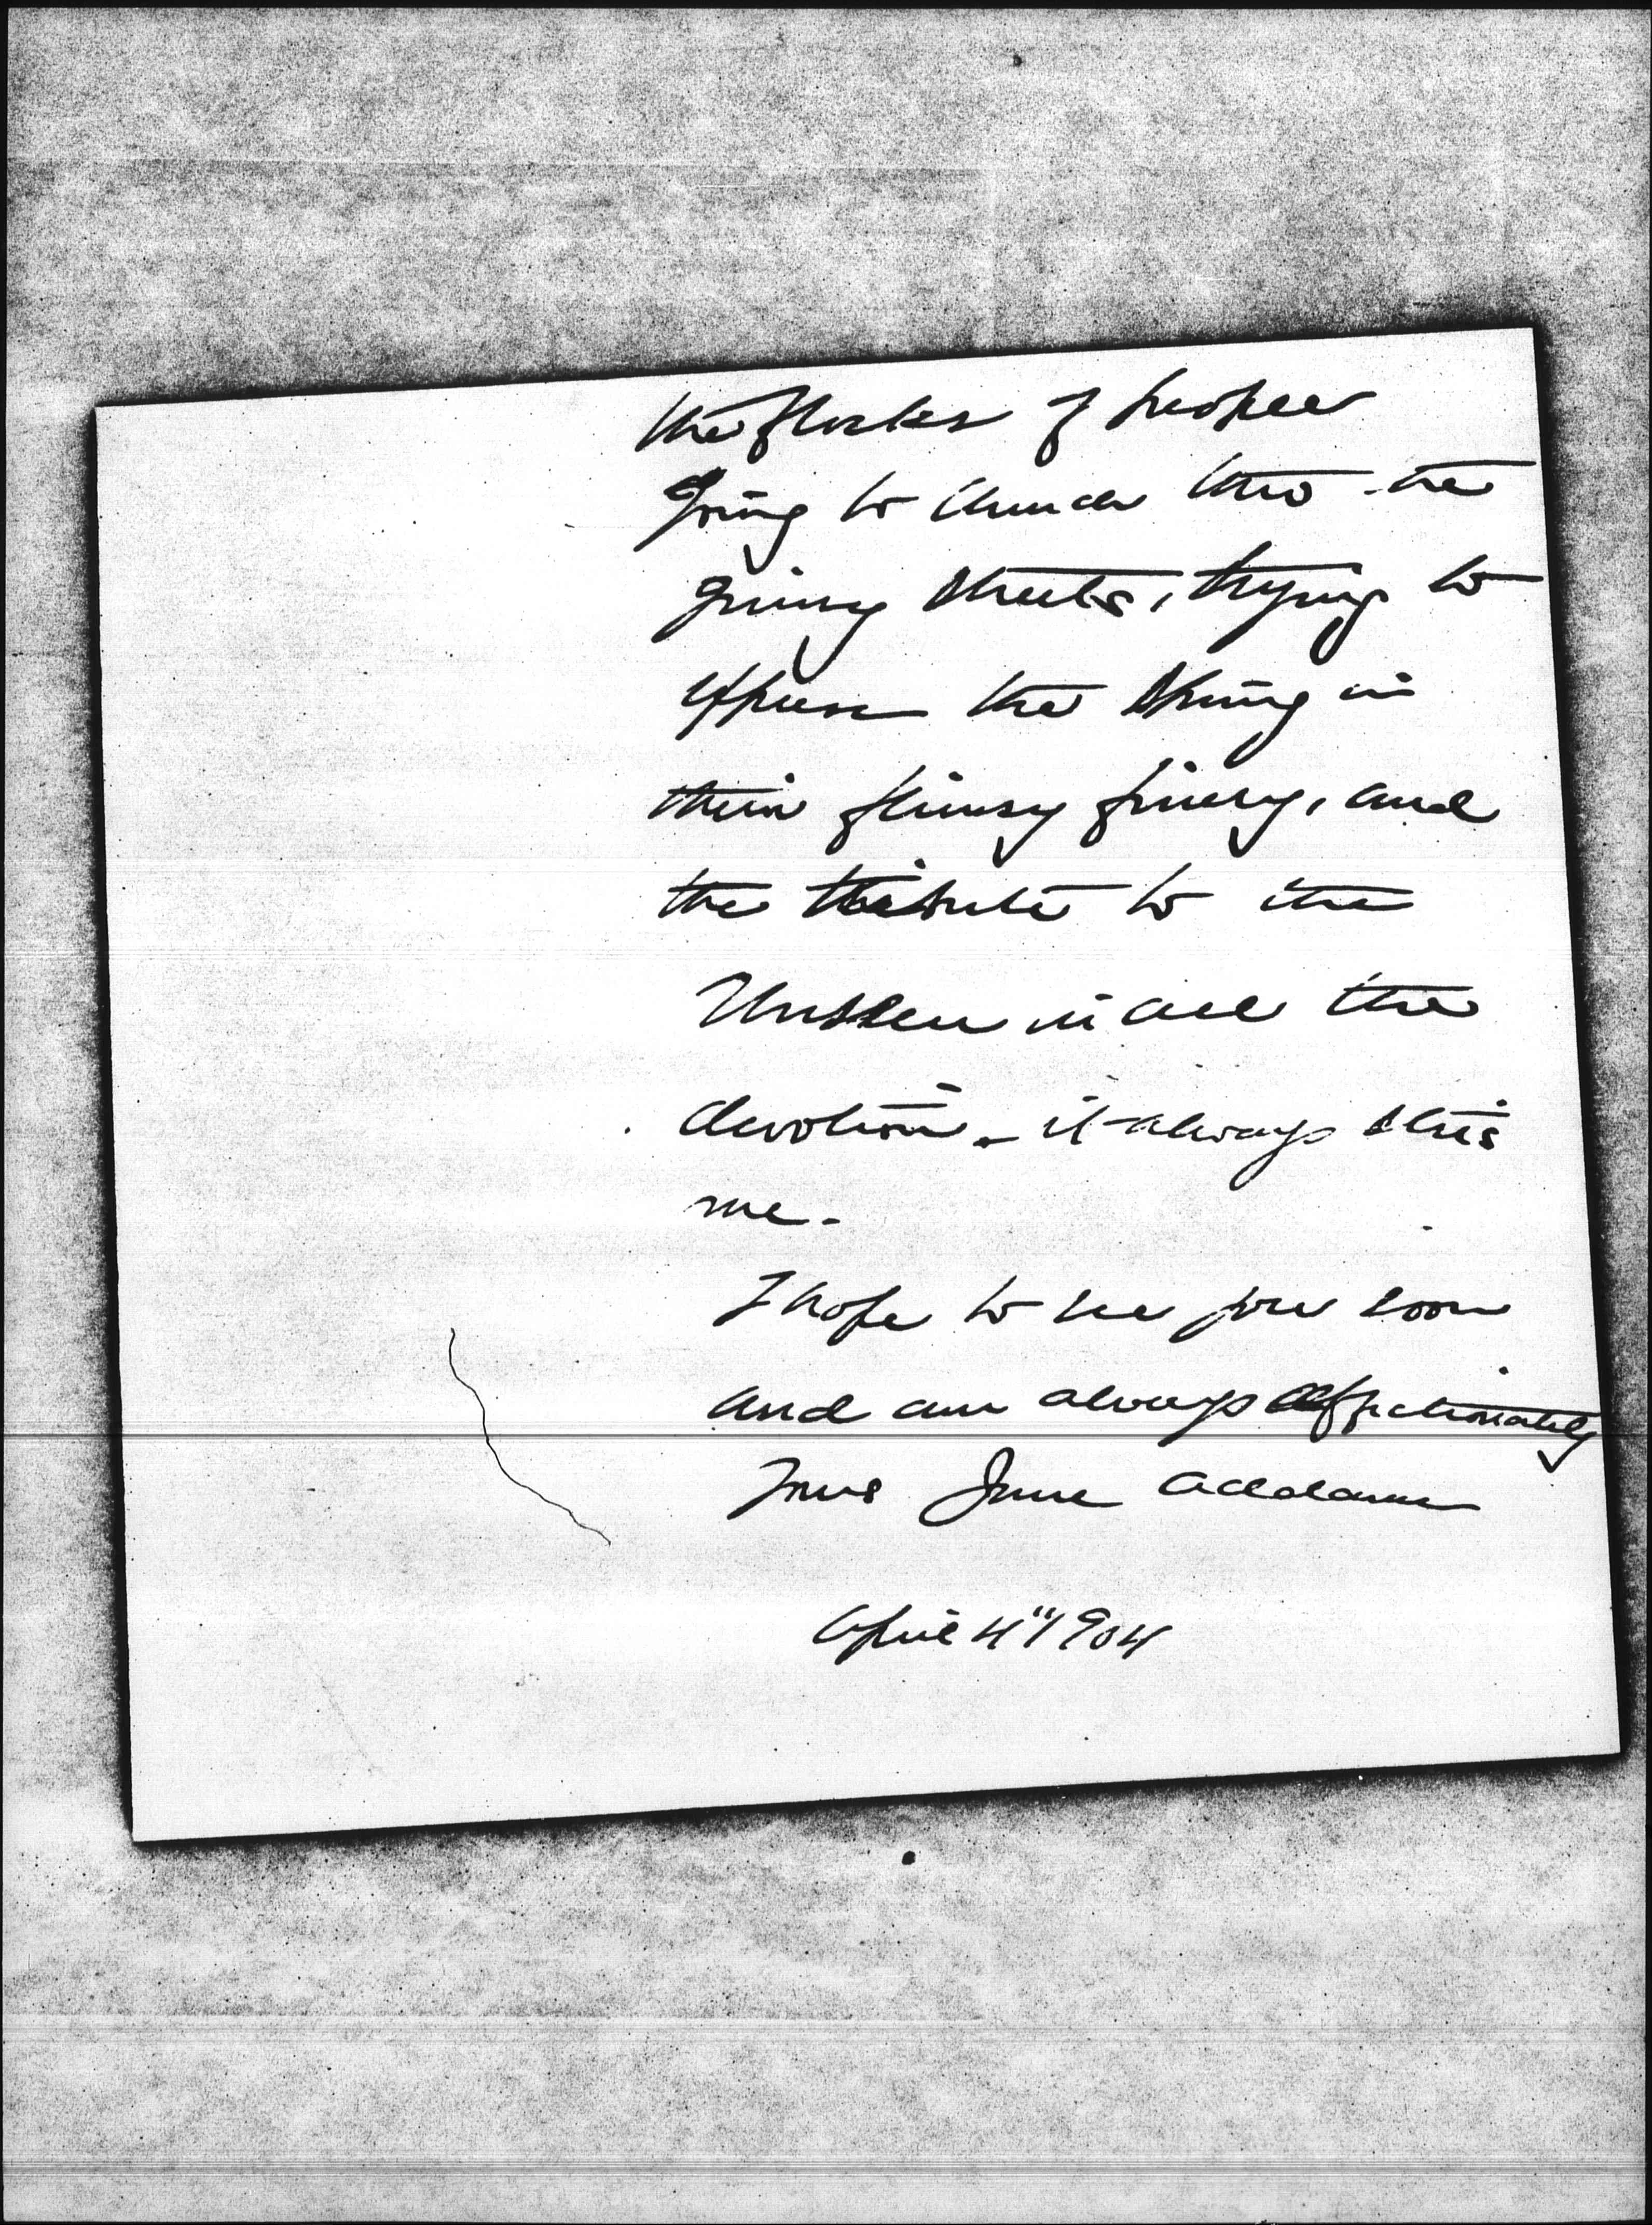 the flocks of people
going to church thro the
grimy streets, trying to
express the Spring in
their flimsy finery, and
the tribute to the
Unseen in all the
devotion - it always stirs
me -
I hope to see you soon
and am always affectionately
Yours Jane Addams
April 4" 1904